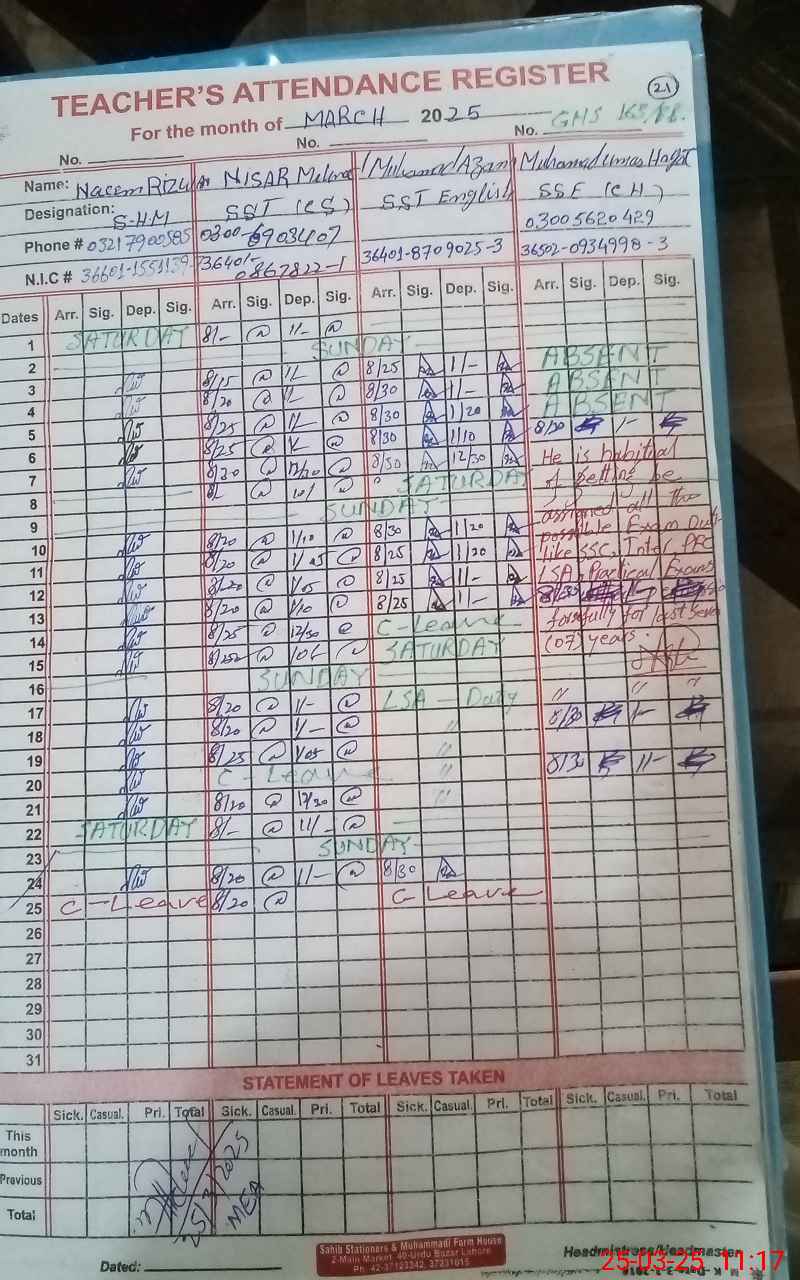 TEACHER'S ATTENDANCE REGISTER
21
For the month of MARCH 2025
GHS 165/EB.
No. No. No.
Name: Naeem Rizwan NISAR Muhamad Azam
Designation: S-HM SST (CS) SST English SSE (CH)
Phone # 03217900585 0300-6903407 03005620429
N.I.C # 36601-1551139- 36401-0867822-1 36401-8709025-3 36502-0934998-3
Dates Arr. Sig. Dep. Sig. Arr. Sig. Dep. Sig. Arr. Sig. Dep. Sig. Arr. Sig. Dep. Sig.
1 SATURDAY 8/- 11/-
2 SUNDAY
3 8/15 8/25 1/- ABSENT
4 8/20 8/30 1/- ABSENT
5 8/25 8/30 1/20 ABSENT
6 8/25 8/30 1/10 8/30 1-
7 8/20 12/20 8/30 12/30 He is habitual
8 SATURDAY of getting be
9 SUNDAY assigned all the
10 8/20 1/10 8/30 1/20 possible Exam Duti
11 8/20 1/05 8/25 1/20 like SSC, Inter, PPC
12 8/20 1/05 8/25 1/- LSA, Practical Exams
13 8/20 1/10 8/25 1/- 8/30
14 8/25 12/30 C-Leave forsefully for last seven
15 SATURDAY (07) years.
16 SUNDAY
17 8/20 1/- LSA - Duty " " "
18 8/20 1/- " 8/30 1-
19 8/25 1/05 "
20 C-Leave " 8/30 1/-
21 8/20 12/30 "
22 SATURDAY 8/- 11/-
23 SUNDAY
24 8/20 1/- 8/30
25 C-Leave 8/20 C Leave
26
27
28
29
30
31
STATEMENT OF LEAVES TAKEN
Sick. Casual. Pri. Total Sick. Casual. Pri. Total Sick. Casual. Pri. Total Sick. Casual. Pri. Total
This month
Previous
Total
25/3/2025
MEA
Dated:
Sahib Stationers & Muhammadi Farm House
2-Main Market, 40-Urdu Bazar Lahore
Ph: 42-37123342, 37231015
Headmistress/Headmaster
25-03-25 11:17